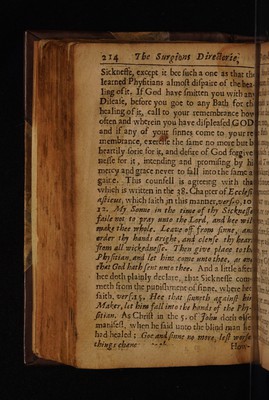 214 The Surgions Directorie,
Sicknesse, except it bee such a one as that the
learned Physitians almost dispaire of the hea-
ling of it. If God have smitten you with any
Disease, before you goe to any Bath for the
healing of it, call to your remembrance how
often and wherein you displeased GOD
and if any of your sinnes come to your re-
membrance, exercise the same no more but b
heartily sorie for it, and desire of God forgive
nesse for it, intending and promising by hi
mercy and grace never to fall into the same a
gaine. This counsell is agreeing with tha
which is written in the 38. Chapter of Ecclesi
asticus, which saith in this manner, vers. 9, 10
12. My Sonne in the time of thy Sicknesse
faile not to pray unto the Lord, and hee will
make thee whole. Leave off from sinne, and
order thy hands aright, and clense thy heart
from all wickednesse. Then give place to the
Physitian, and let him come unto thee, as one
that God hath sent unto thee. And a little after
hee doth plainly declare, that Sicknesse com-
meth from the punishment of sinne, where hee
saith, vers. 15. Hee that sinneth against his
Maker, let him fall into the hands of the Phy-
sitian. As Christ in the 5. of John doth also
manifest, when he said unto the blind man he
had healed; Goe and sinne no more, lest worse
things chance
How-